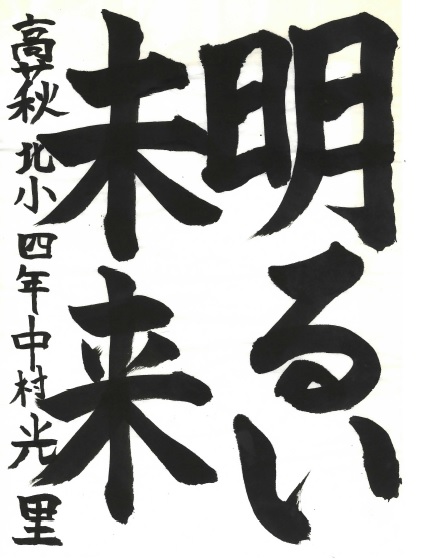 明るい
未来
高萩北小四年中村光里